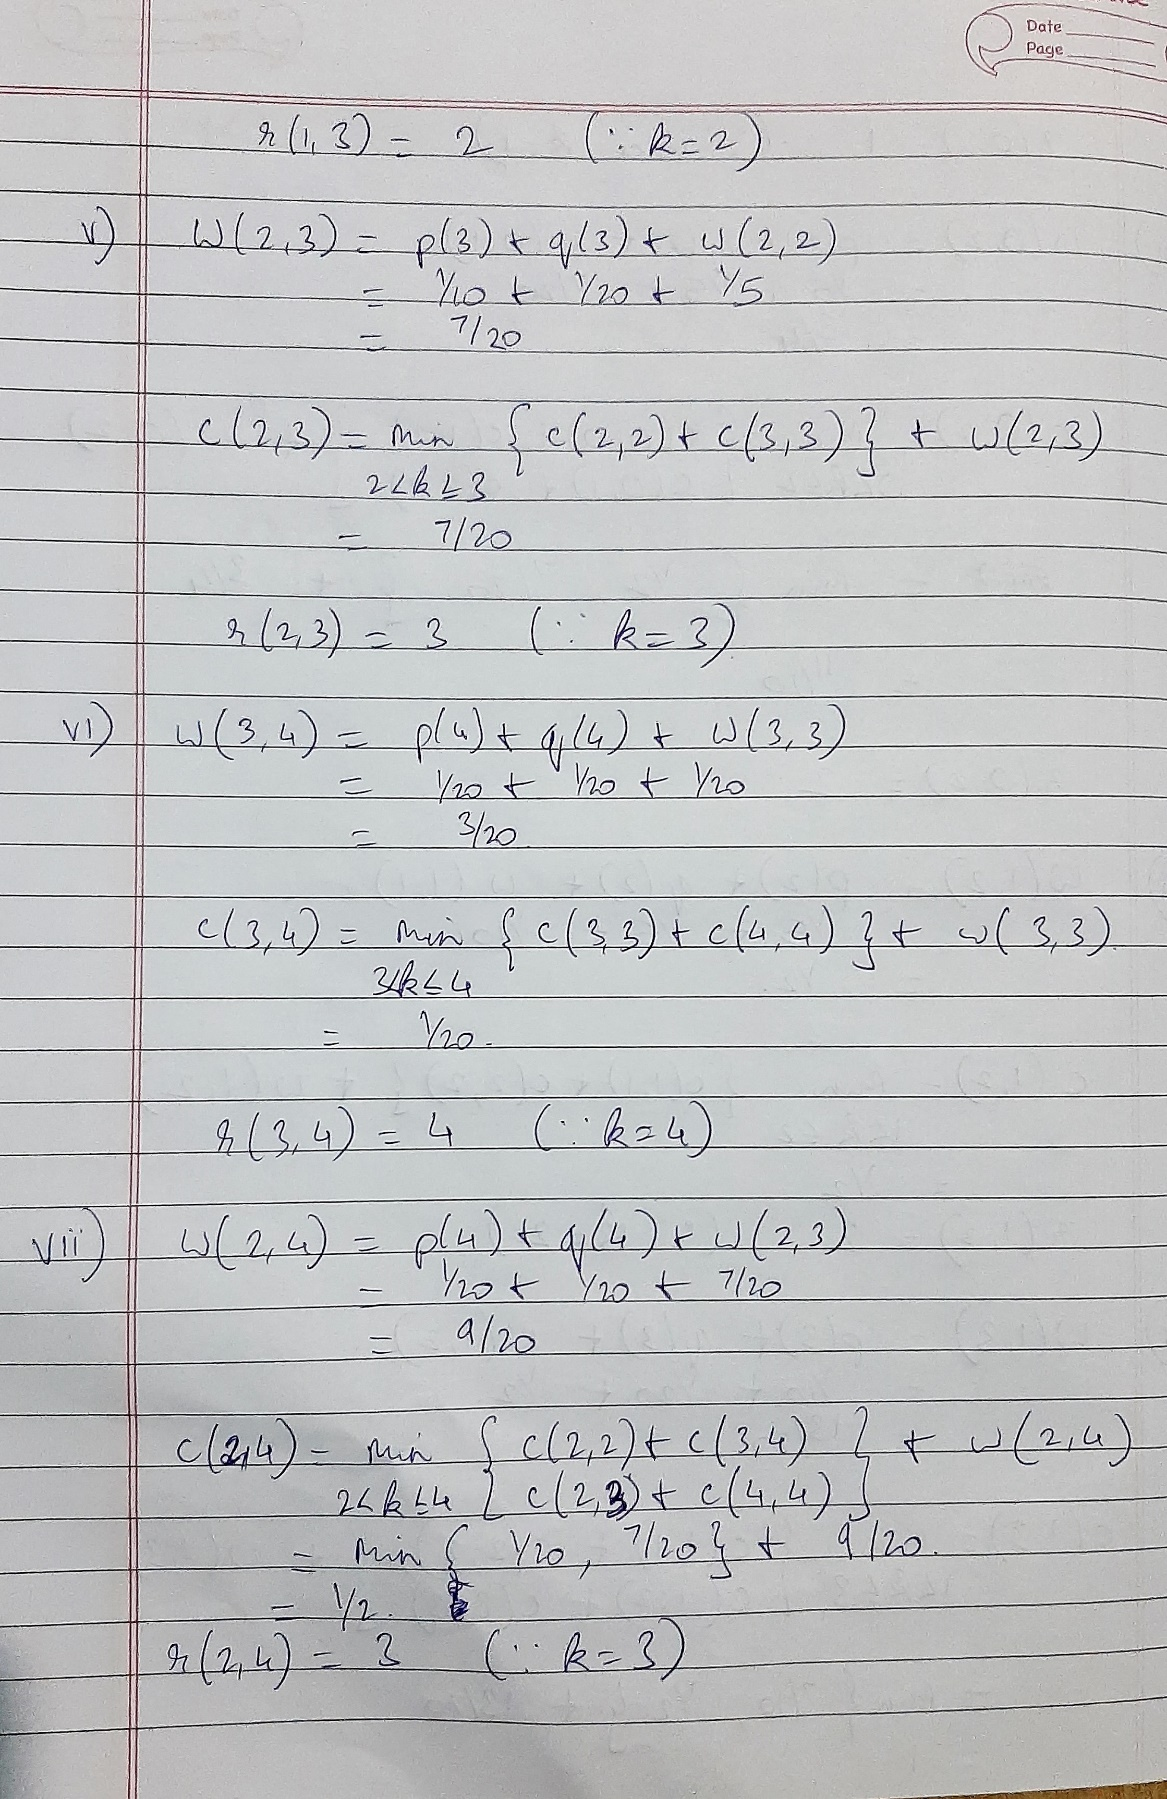 Date
Page
r(1,3) = 2 (∵ k=2)
v) W(2,3) = p(3) + q(3) + w(2,2)
= 1/10 + 1/20 + 1/5
= 7/20
c(2,3) = min { c(2,2) + c(3,3) } + w(2,3)
2<k≤3
= 7/20
r(2,3) = 3 (∵ k=3)
vi) w(3,4) = p(4) + q(4) + w(3,3)
= 1/20 + 1/20 + 1/20
= 3/20
c(3,4) = min { c(3,3) + c(4,4) } + w(3,3).
3<k≤4
= 1/20.
r(3,4) = 4 (∵ k=4)
vii) w(2,4) = p(4) + q(4) + w(2,3)
= 1/20 + 1/20 + 7/20
= 9/20
c(2,4) = min { c(2,2) + c(3,4) } + w(2,4)
2<k≤4 { c(2,3) + c(4,4) }
= min { 1/20, 7/20 } + 9/20.
= 1/2.
r(2,4) = 3 (∵ k=3)